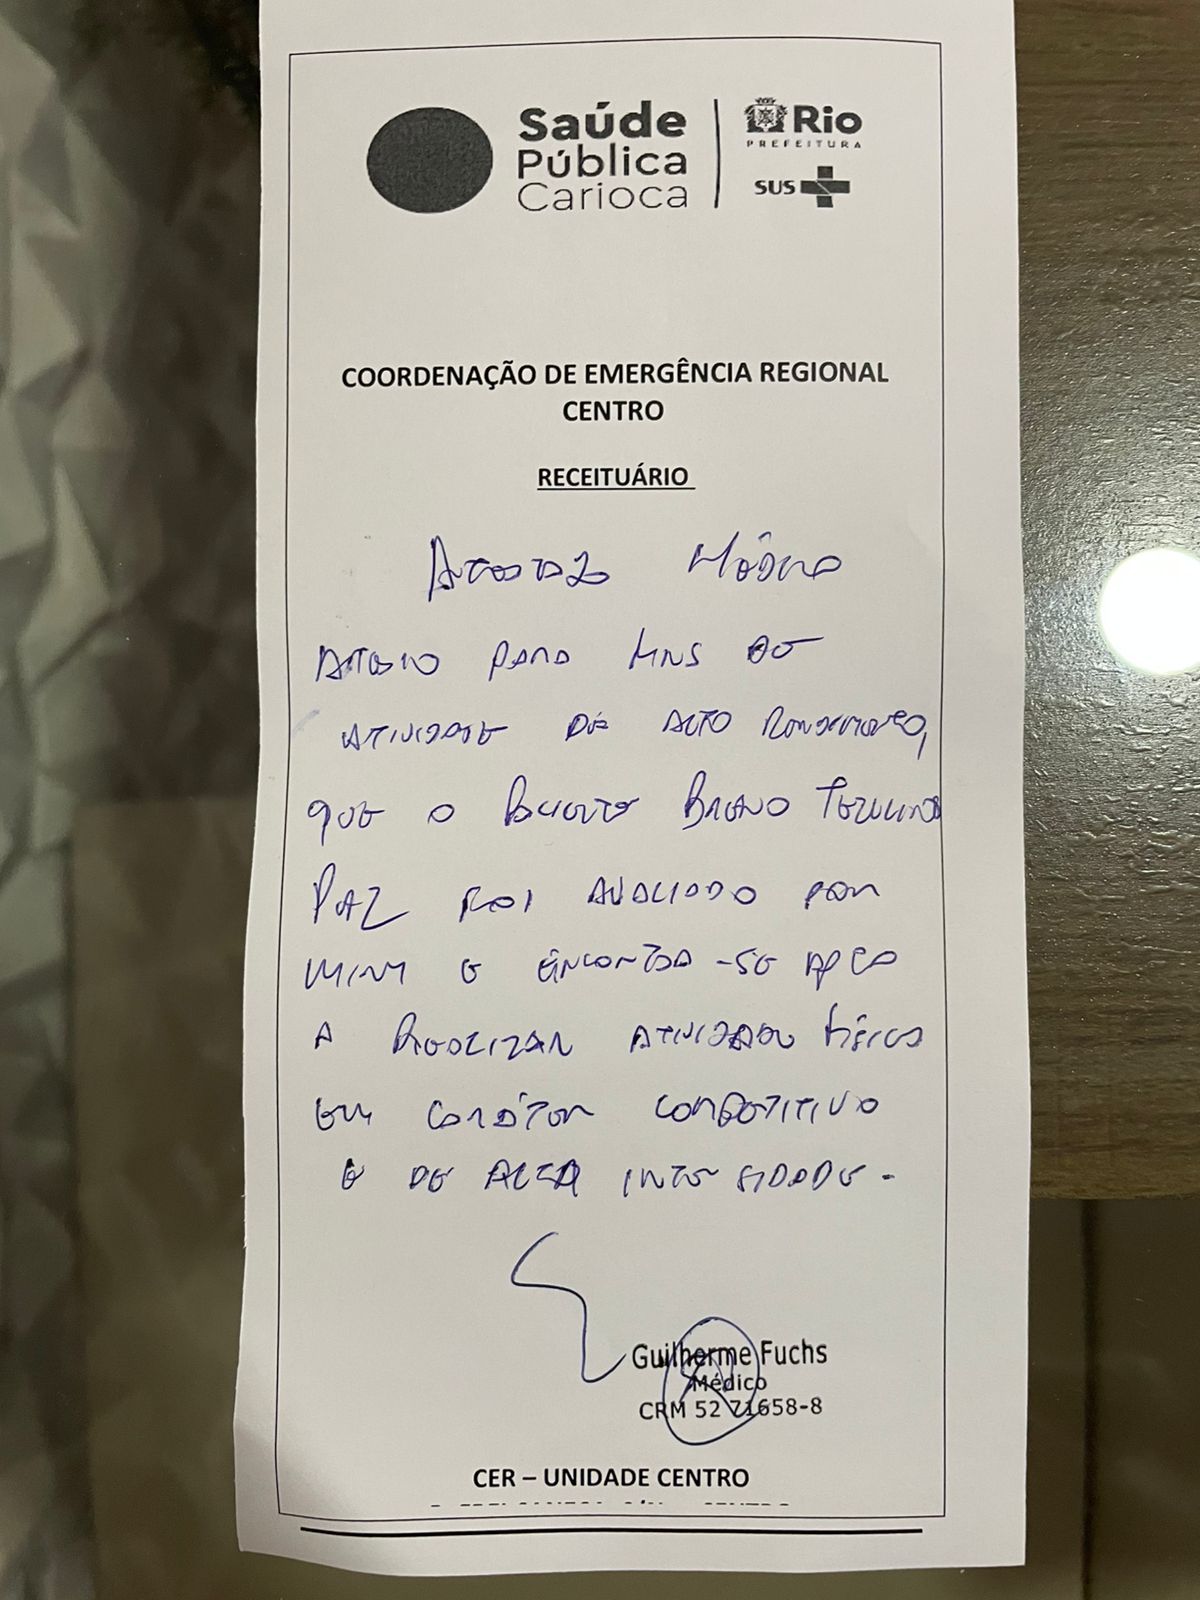 Saúde
Pública
Carioca
Rio
PREFEITURA
SUS
COORDENAÇÃO DE EMERGÊNCIA REGIONAL
CENTRO
RECEITUÁRIO
Atestado Médico
Atesto para fins de
atividade de alto rendimento,
que o paciente Breno
Paz foi avaliado por
mim e encontra-se apto
a realizar atividade física
em caráter competitivo
e de alta intensidade.
Guilherme Fuchs
Médico
CRM 52 71658-8
CER – UNIDADE CENTRO